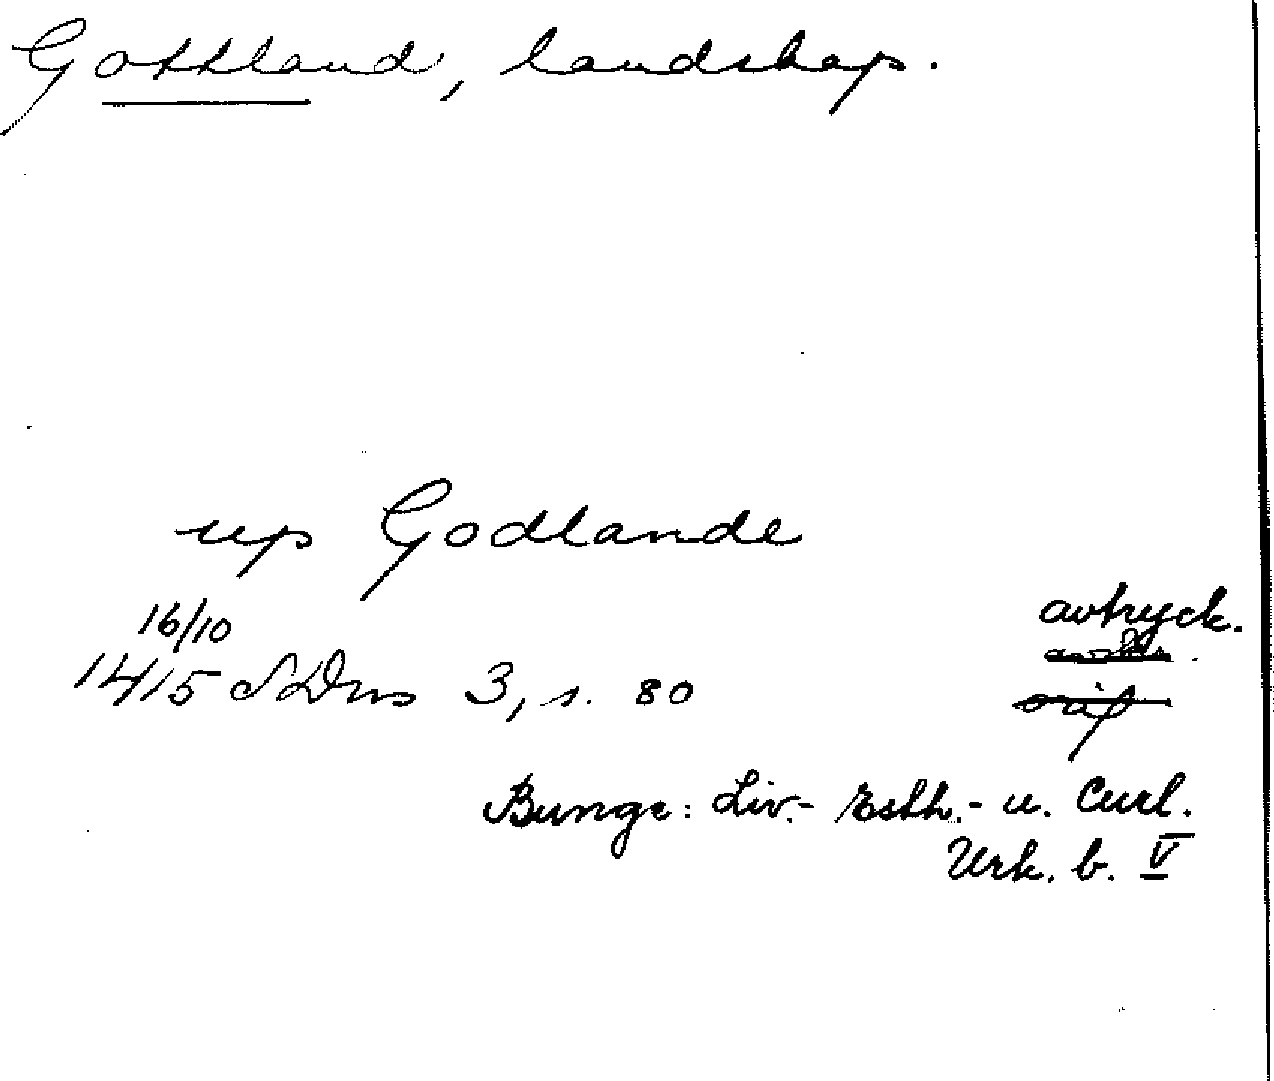 Gottland, landskap.
up Godlande
16/10
1415 SDns 3, s. 80
avtryck.
Bunge: Liv.- Esth.- u. Curl.
Urk. b. V